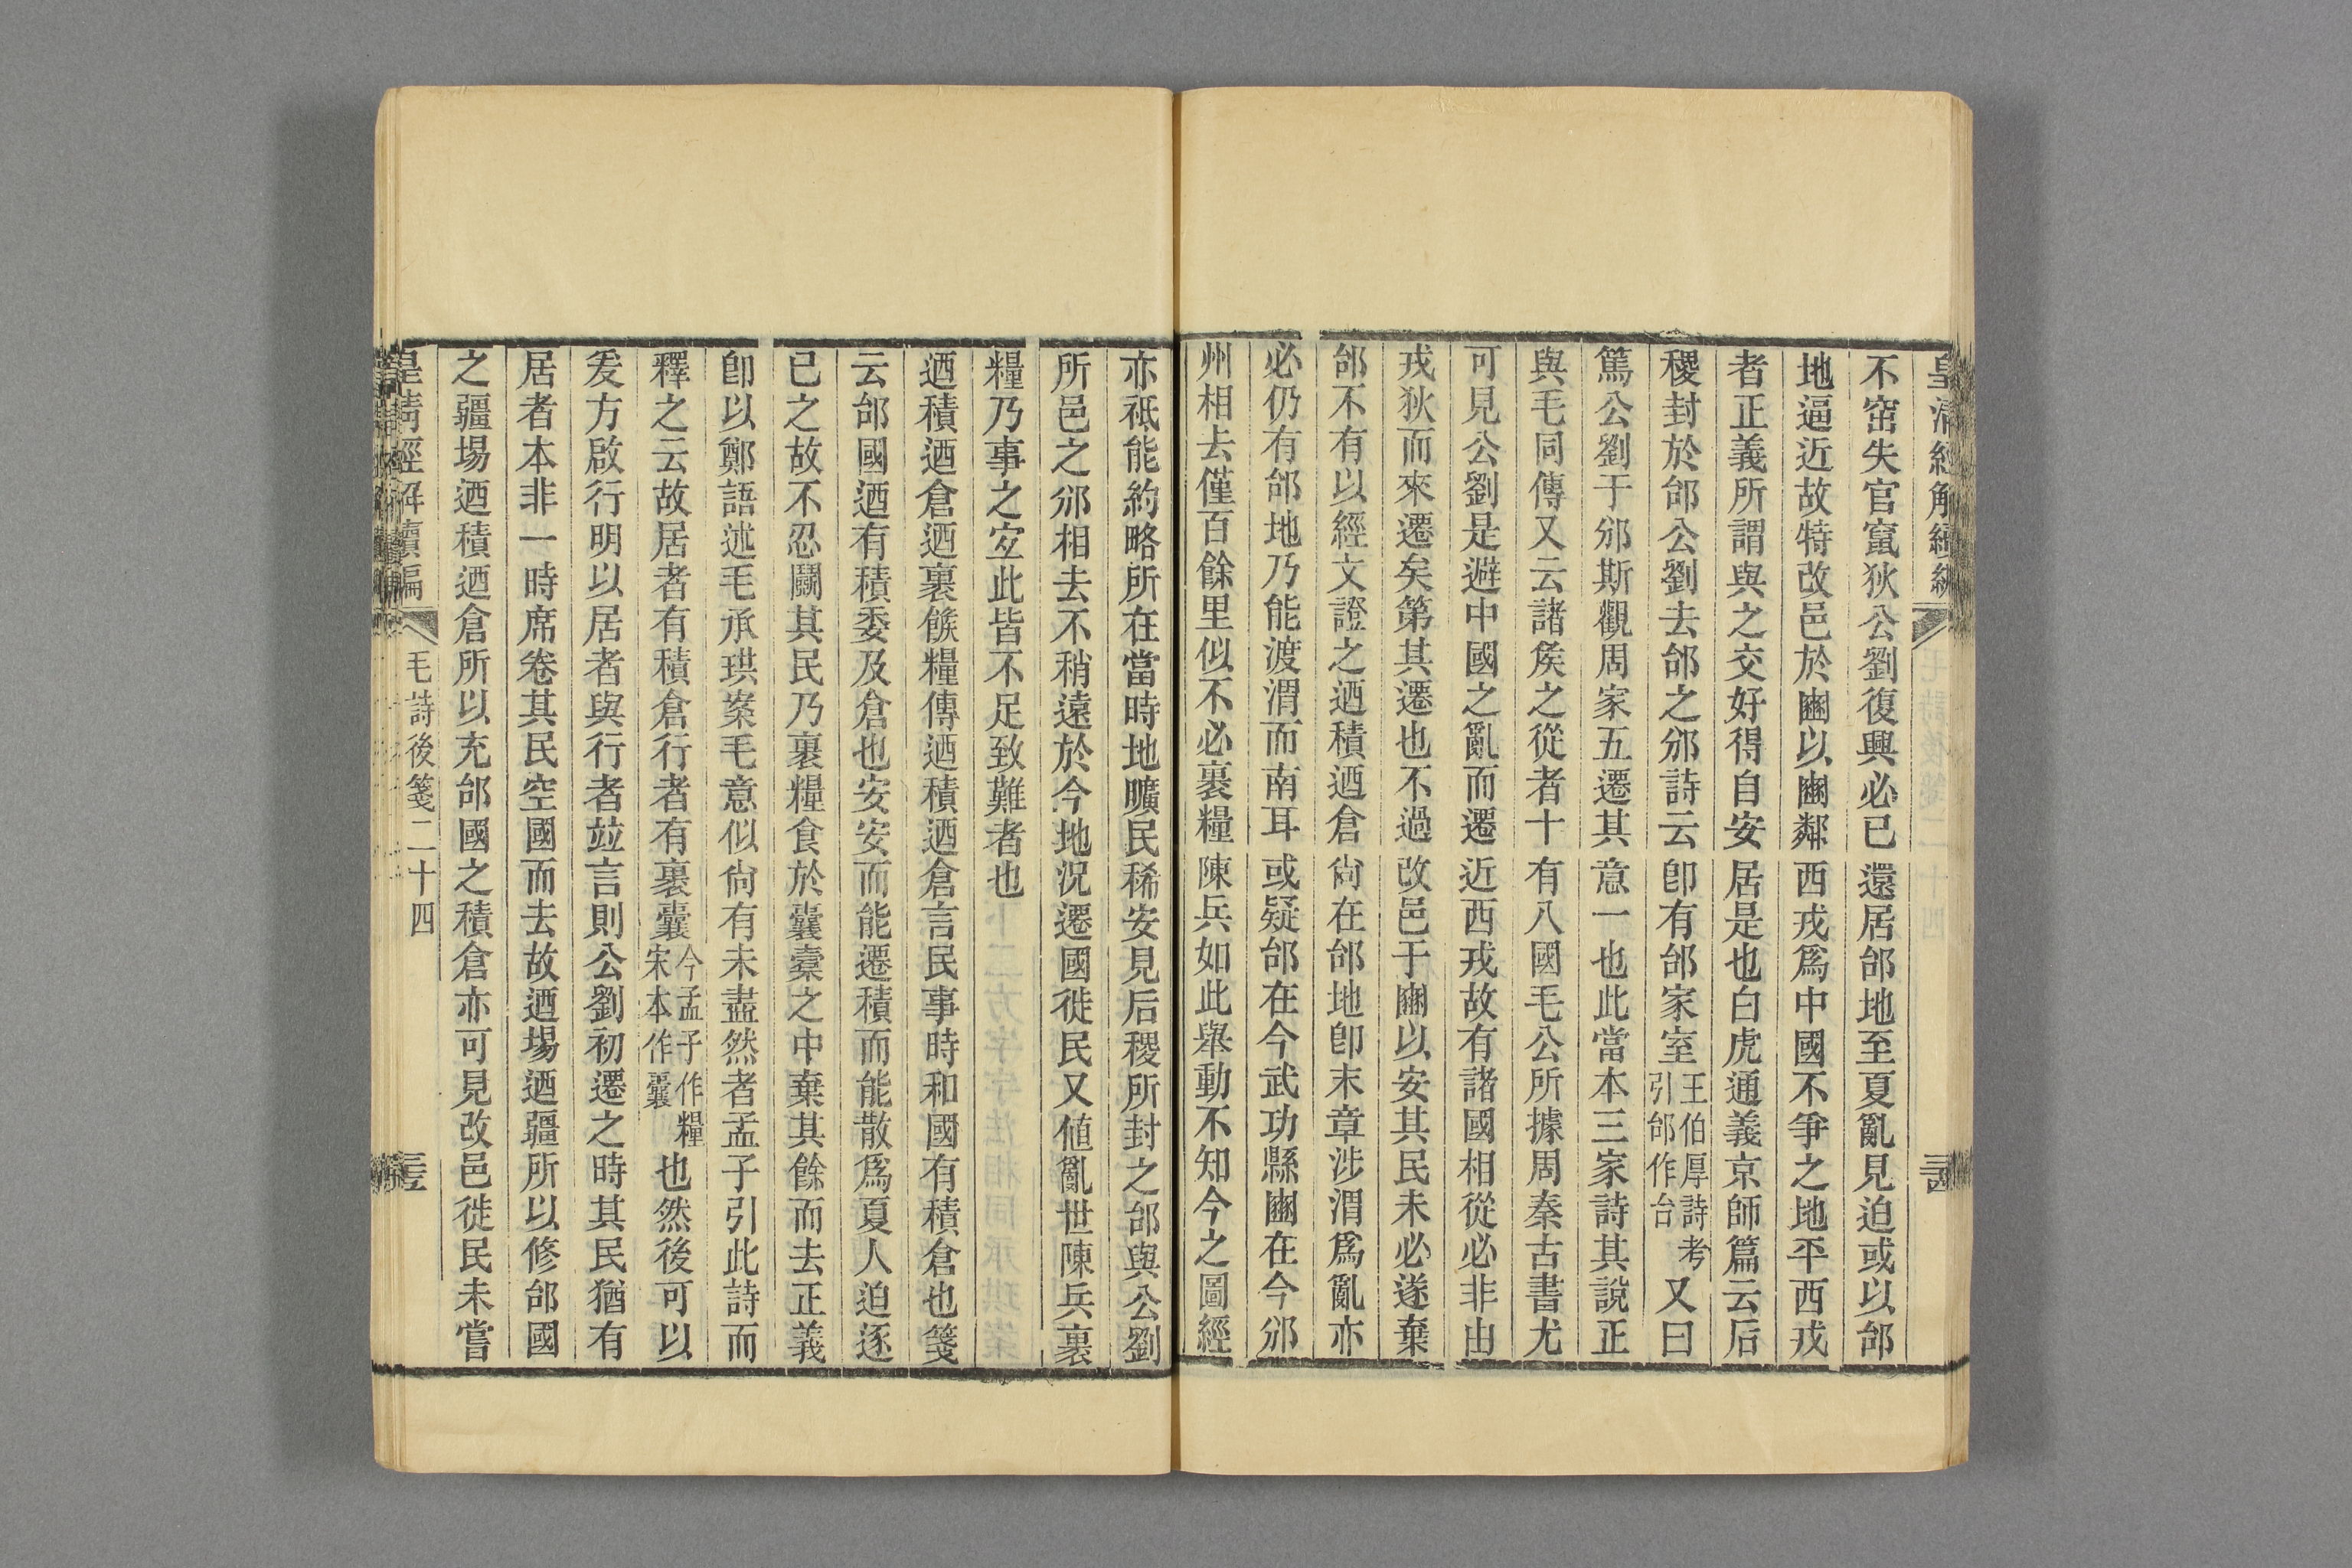 皇清經解續編
不窋失官竄狄公劉復興必已還居邰地至夏亂見迫或以邰
地逼近故特改邑於豳以豳鄰西戎爲中國不爭之地平西戎
者正義所謂與之交好得自安居是也白虎通義京師篇云后
稷封於邰公劉去邰之邠詩云卽有邰家室王伯厚詩考引邰作台又曰
篤公劉于邠斯觀周家五遷其意一也此當本三家詩其說正
與毛同傳又云諸矦之從者十有八國毛公所據周秦古書尤
可見公劉是避中國之亂而遷近西戎故有諸國相從必非由
戎狄而來遷矣第其遷也不過改邑于豳以安其民未必遂棄
邰不有以經文證之迺積迺倉尙在邰地卽末章涉渭爲亂亦
必仍有邰地乃能渡渭而南耳或疑邰在今武功縣豳在今邠
州相去僅百餘里似不必裹糧陳兵如此舉動不知今之圖經
亦祗能約略所在當時地曠民稀安見后稷所封之邰與公劉
所邑之邠相去不稍遠於今地況遷國徙民又値亂世陳兵裹
糧乃事之宐此皆不足致難者也
迺積迺倉迺裹餱糧傳迺積迺倉言民事時和國有積倉也箋
云邰國迺有積委及倉也安安而能遷積而能散爲夏人迫逐
已之故不忍鬬其民乃裹糧食於囊橐之中棄其餘而去正義
卽以鄭語述毛承珙案毛意似尙有未盡然者孟子引此詩而
釋之云故居者有積倉行者有裹囊今孟子作糧宋本作囊也然後可以
爰方啟行明以居者與行者竝言則公劉初遷之時其民猶有
居者本非一時席卷其民空國而去故迺埸迺疆所以修邰國
之疆埸迺積迺倉所以充邰國之積倉亦可見改邑徙民未嘗
皇淸經解續編
毛詩後箋二十四